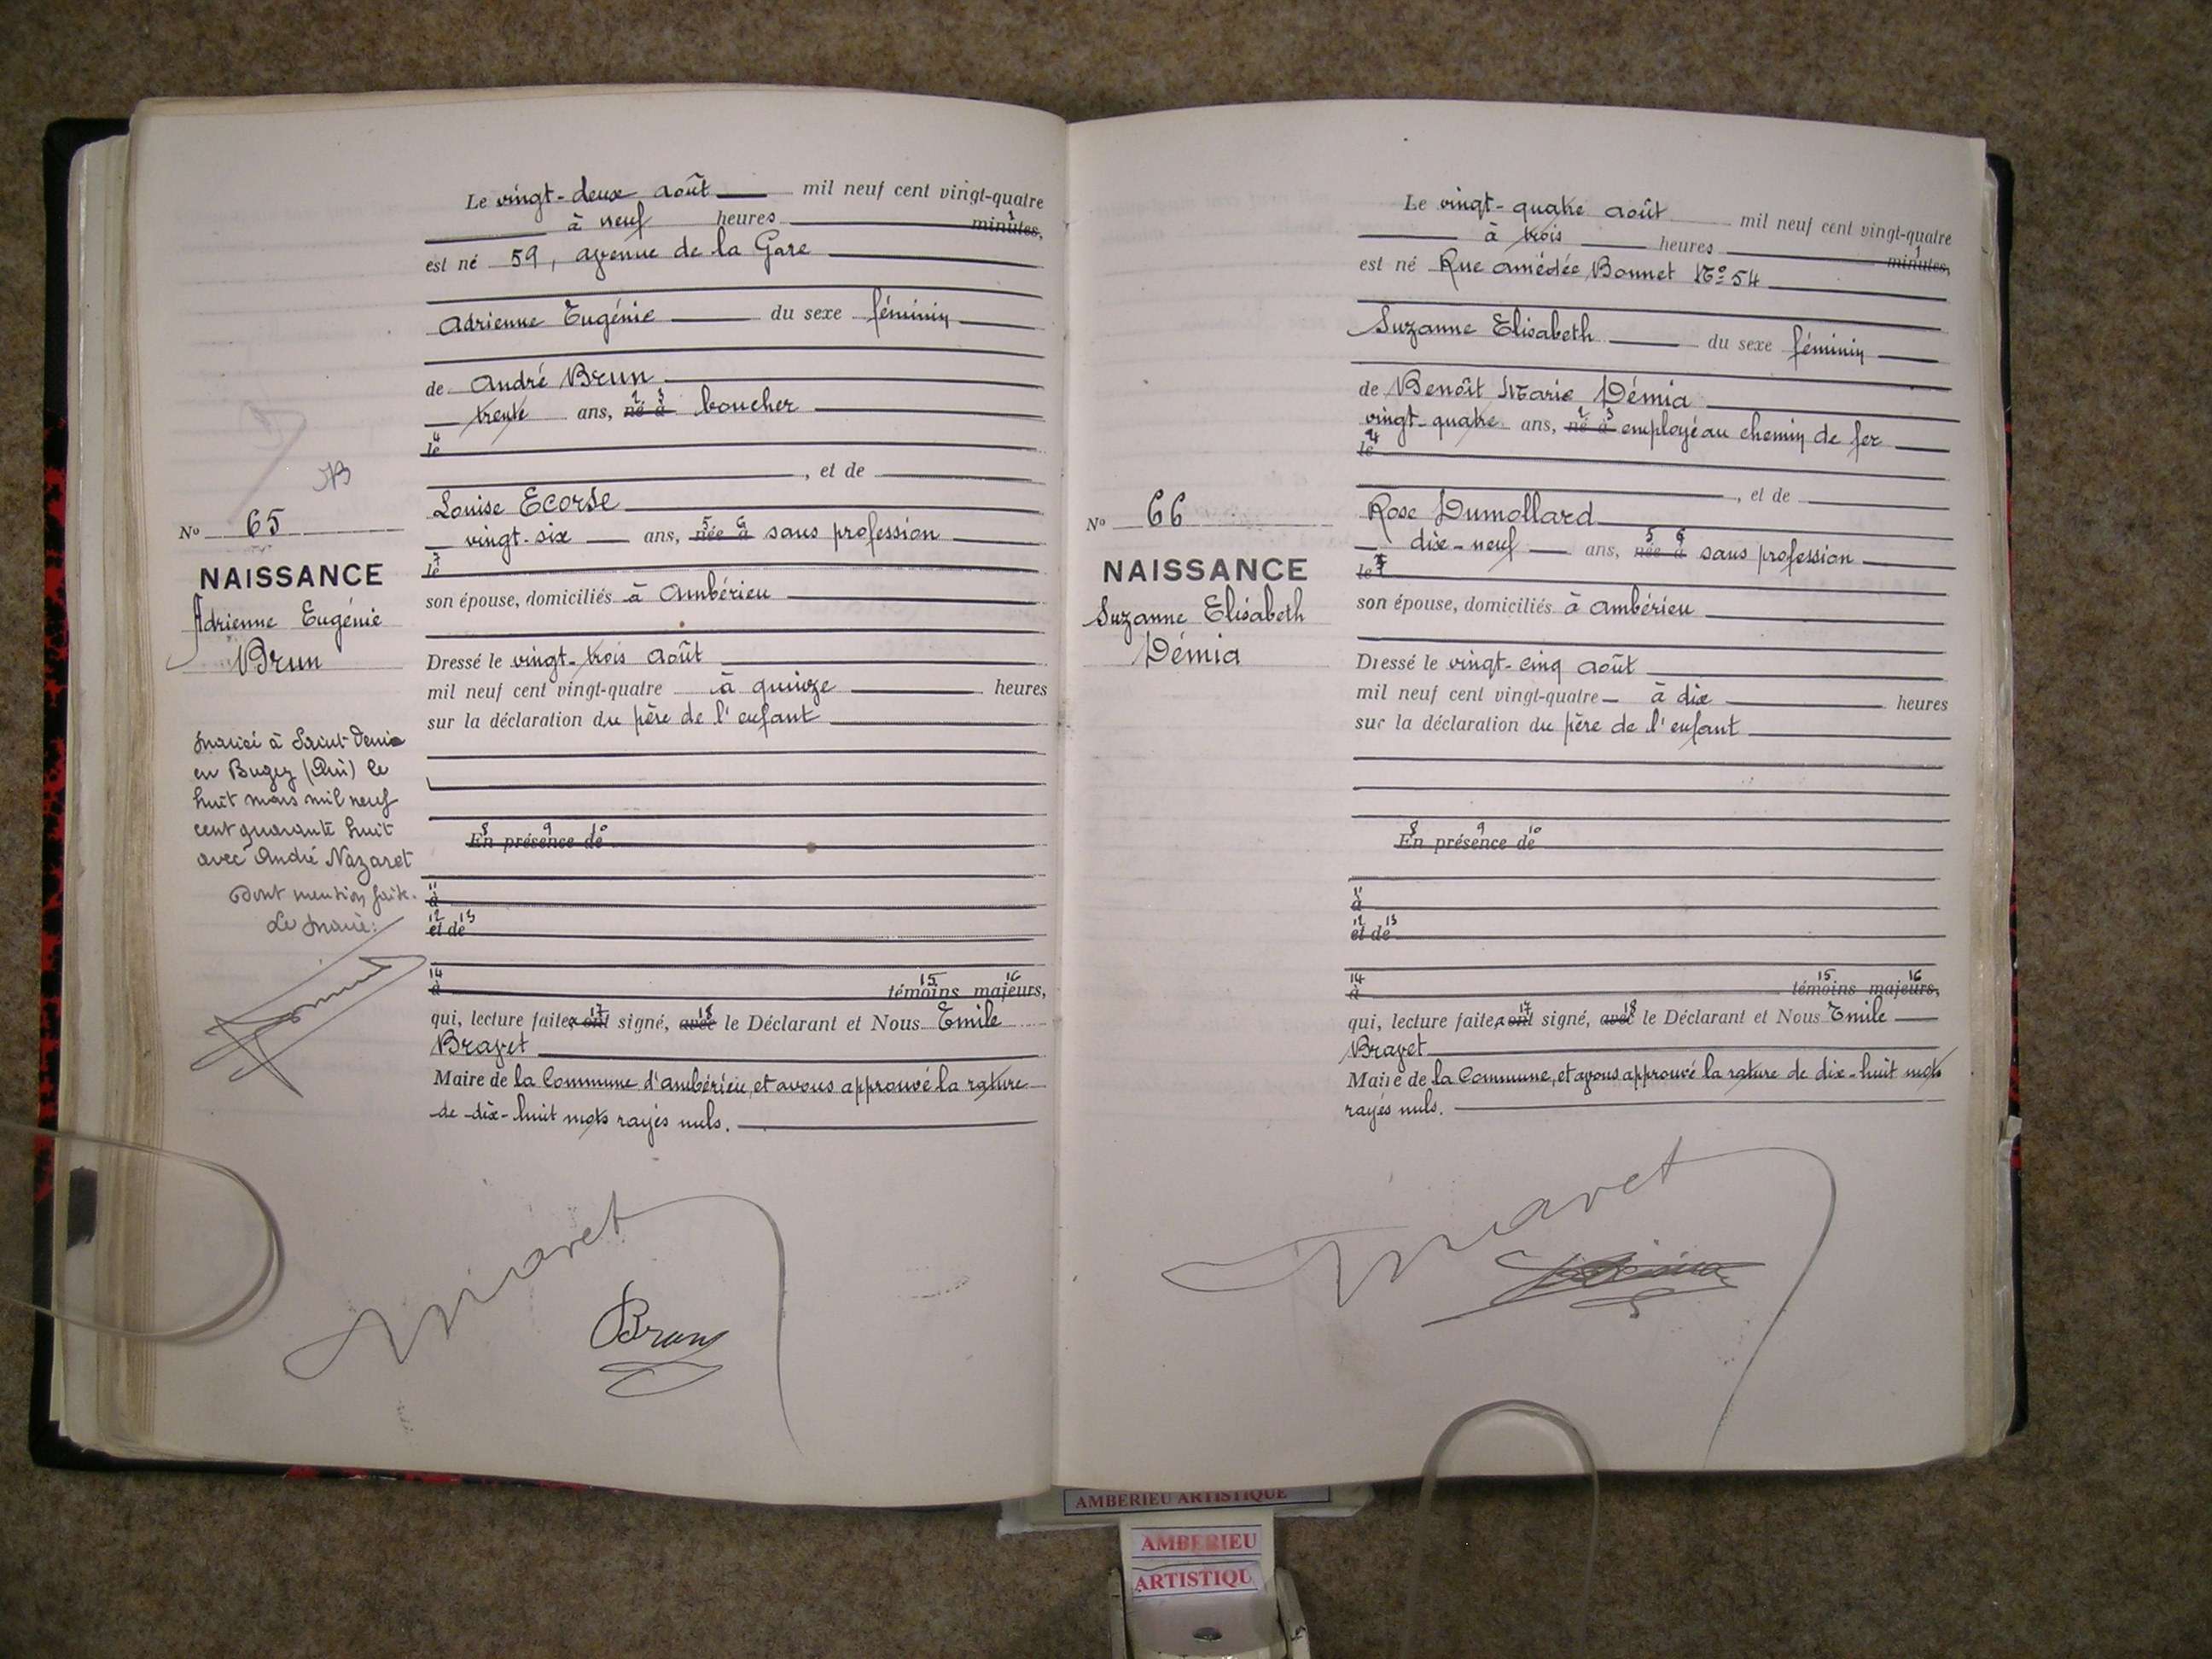 Le vingt-deux août mil neuf cent vingt-quatre
à neuf heures minutes,
est né 59, avenue de la Gare
Adrienne Eugénie du sexe féminin
de André Brun
trente ans, né à boucher
le
, et de
Louise Ecorse
vingt-six ans, née à sans profession
le
son épouse, domiciliés à Ambérieu
Dressé le vingt-trois août
mil neuf cent vingt-quatre à quinze heures
sur la déclaration du père de l'enfant
En présence de
à
et de
à témoins majeurs,
qui, lecture faite, ont signé, avec le Déclarant et Nous Emile
Bravet
Maire de la Commune d'Ambérieu, et avons approuvé la rature
de dix-huit mots rayés nuls.
Brun
No 65
NAISSANCE
Adrienne Eugénie
Brun
Marié à Saint-Denis
en Bugey (Ain) le
huit mars mil neuf
cent quarante huit
avec André Nazaret
Dont mention faite.
Le Maire:
Le vingt-quatre août mil neuf cent vingt-quatre
à trois heures minutes,
est né Rue Amédée Bonnet No 54
Suzanne Elisabeth du sexe féminin
de Benoît Marie Démia
vingt-quatre ans, né à employé au chemin de fer
le
, et de
Rose Dumollard
dix-neuf ans, née à sans profession
le
son épouse, domiciliés à Ambérieu
Dressé le vingt-cinq août
mil neuf cent vingt-quatre à dix heures
sur la déclaration du père de l'enfant
En présence de
à
et de
à témoins majeurs,
qui, lecture faite, ont signé, avec le Déclarant et Nous Emile
Bravet
Maire de la Commune, et avons approuvé la rature de dix-huit mots
rayés nuls.
No 66
NAISSANCE
Suzanne Elisabeth
Démia
AMBERIEU ARTISTIQUE
AMBERIEU
ARTISTIQU